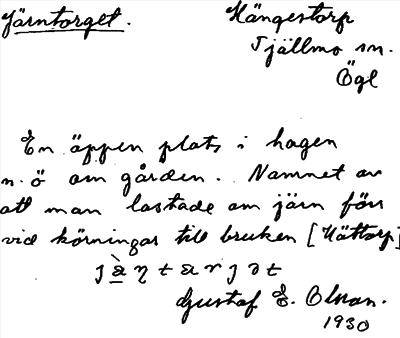 Järntorget.
Hängestorp
Tjällmo sn.
Ögl
En öppen plats i hagen
n. ö om gården. Namnet av
att man lastade om järn förr
vid körningar till bruken [Hättorp]
Gustaf E. Olson.
1930